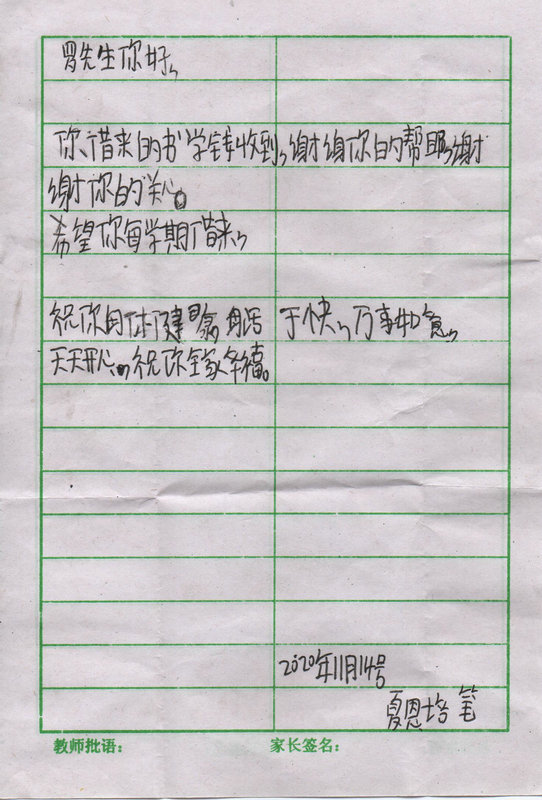 罗先生你好，
你借来的书学钱收到，谢谢你的帮助，谢
谢你的关心。
希望你每学期借来，
祝你的体健 于快，万事如意，
天天开心，祝你全家幸福。
2020年11月14号
夏恩培 笔
教师批语： 家长签名：